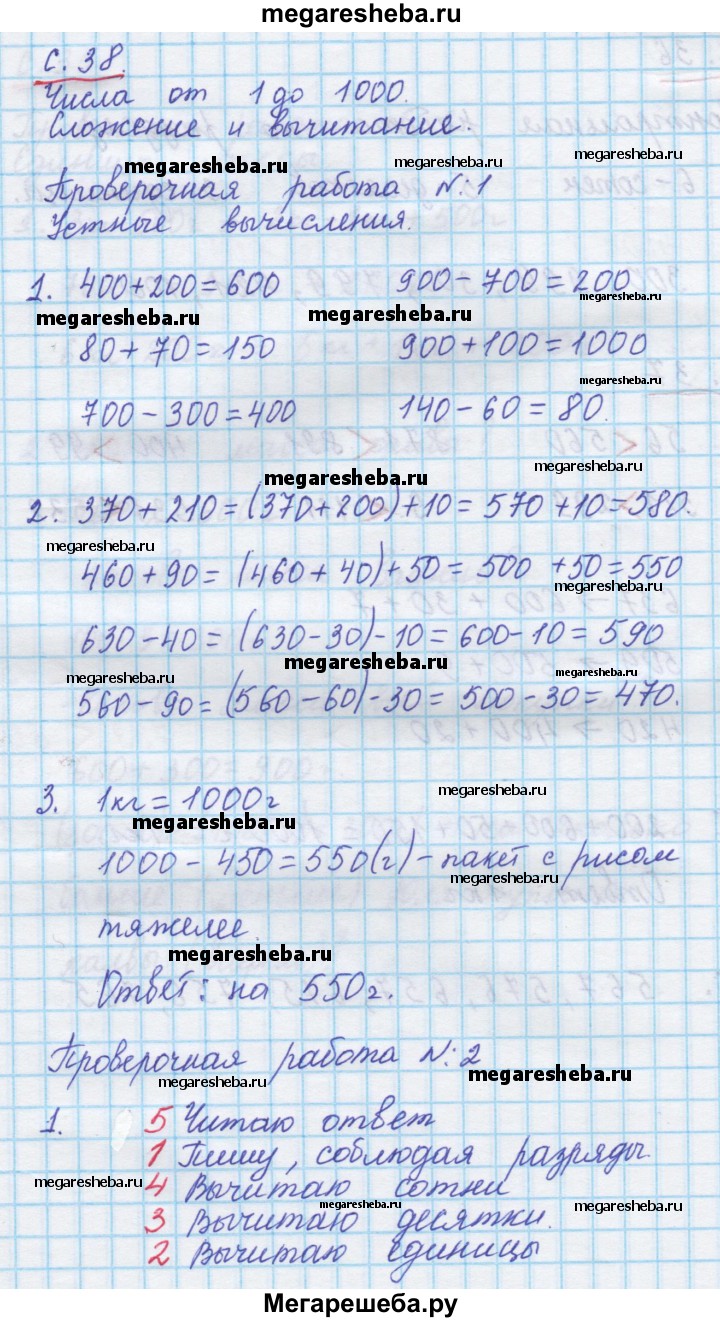 megaresheba.ru
с. 38.
Числа от 1 до 1000.
Сложение и вычитание.
megaresheba.ru
megaresheba.ru
Проверочная работа №:1
Устные вычисления.
1. 400+200=600 900-700=200
megaresheba.ru
megaresheba.ru megaresheba.ru
80+70=150 900+100=1000
megaresheba.ru
700-300=400 140-60=80.
megaresheba.ru
megaresheba.ru
2. 370+210=(370+200)+10=570+10=580.
megaresheba.ru
460+90=(460+40)+50=500+50=550
megaresheba.ru
630-40=(630-30)-10=600-10=590
megaresheba.ru
megaresheba.ru megaresheba.ru
560-90=(560-60)-30=500-30=470.
3. 1кг=1000г
megaresheba.ru
megaresheba.ru
1000-450=550(г)-пакет с рисом
megaresheba.ru
тяжелее.
megaresheba.ru
Ответ: на 550г.
Проверочная работа №:2
megaresheba.ru megaresheba.ru
1. 5 Читаю ответ
1 Пишу, соблюдая разряды.
megaresheba.ru 4 Вычитаю сотни
3 Вычитаю десятки.
megaresheba.ru
2 Вычитаю единицы
Мегарешеба.ру